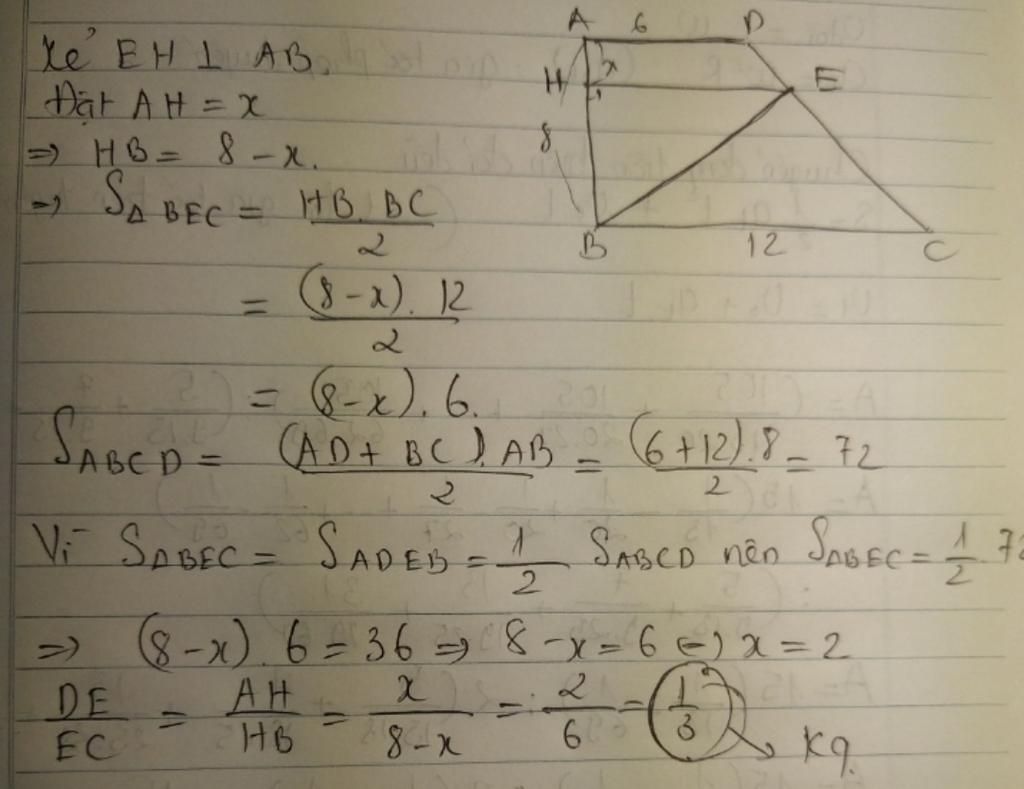 Kẻ EH ⊥ AB.
Đặt AH = x
⇒ HB = 8 - x.
⇒ S△BEC = HB.BC / 2
= (8-x).12 / 2
= (8-x).6.
SABCD = (AD + BC).AB / 2 = (6+12).8 / 2 = 72
Vì S△BEC = SADEB = 1/2 SABCD nên S△BEC = 1/2 .72
⇒ (8-x).6 = 36 ⇒ 8-x = 6 ⇔ x = 2
DE/EC = AH/HB = x/(8-x) = 2/6 = 1/3 → Kq.
A 6 D
H x E
8
B 12 C